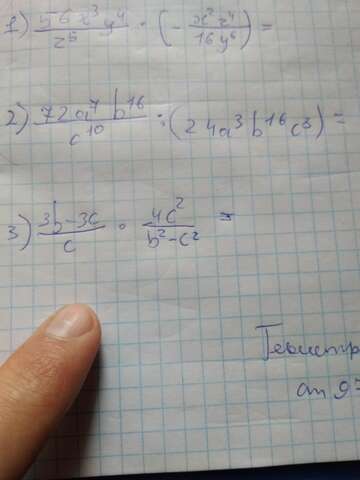 1) 56x³y⁴/z⁵ · (- x²z⁴/16y⁶) =
2) 72a⁷b¹⁶/c¹⁰ : (24a³b¹⁶c³) =
3) 3b-3c/c · 4c²/b²-c² =